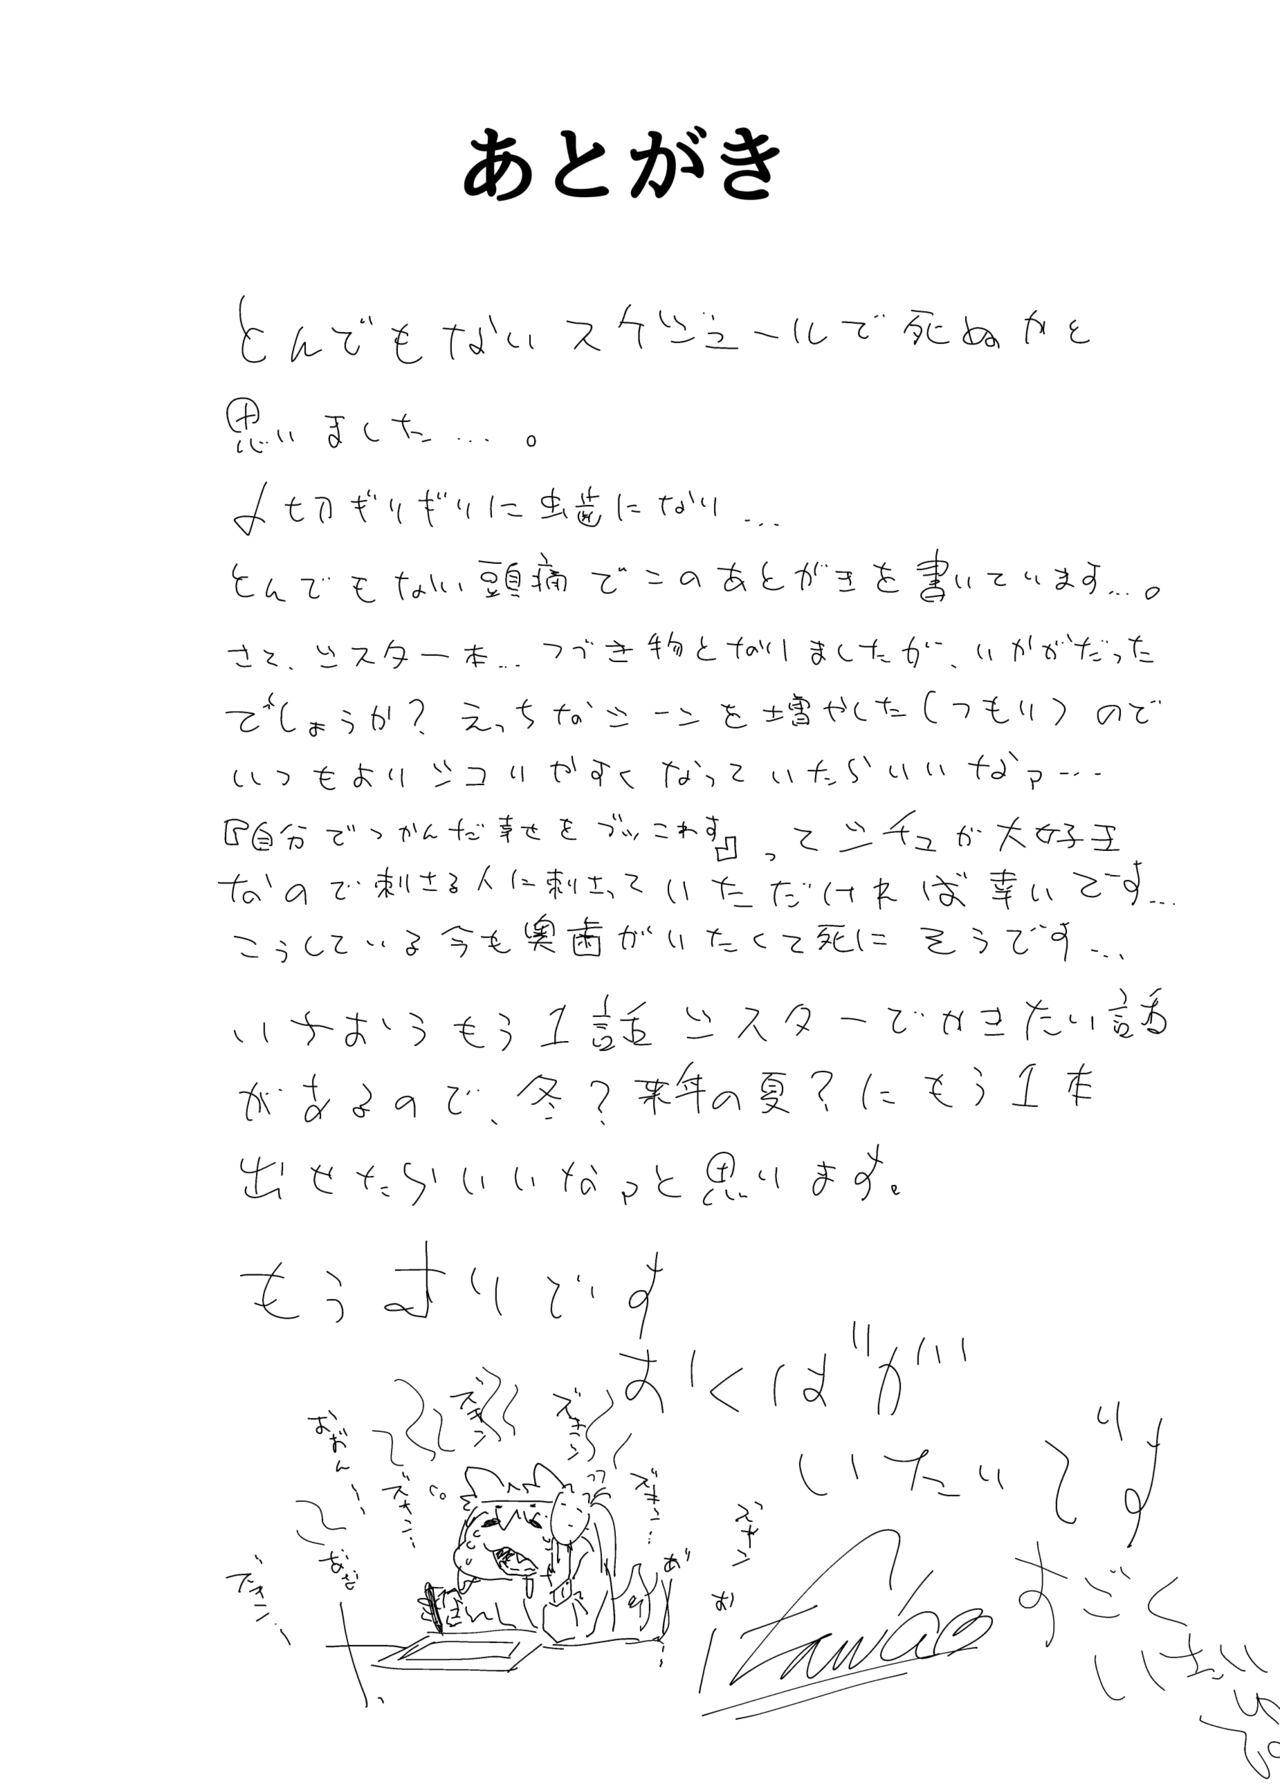 あとがき
とんでもないスケジュールで死ぬかと
思いました…。
〆切ギリギリに虫歯になり…
とんでもない頭痛でこのあとがきを書いています…。
さて、シスター本…つづき物となりましたが、いかがだった
でしょうか?えっちなシーンを増やした(つもり)ので
いつもよりシコりやすくなっていたらいいなァ…
『自分でつかんだ幸せをブッこわす』ってシチュが大好玉
なので刺さる人に刺さっていただければ幸いです…
こうしている今も奥歯がいたくて死にそうです…
いちおうもう1話シスターでかきたい話
があるので、冬?来年の夏?にもう1本
出せたらいいなァと思います。
もうムリです
おくばが
いたいです
すごく
いたい
ズキン
ズキン
ズキン…
ズキン…
ズキン
おおん…